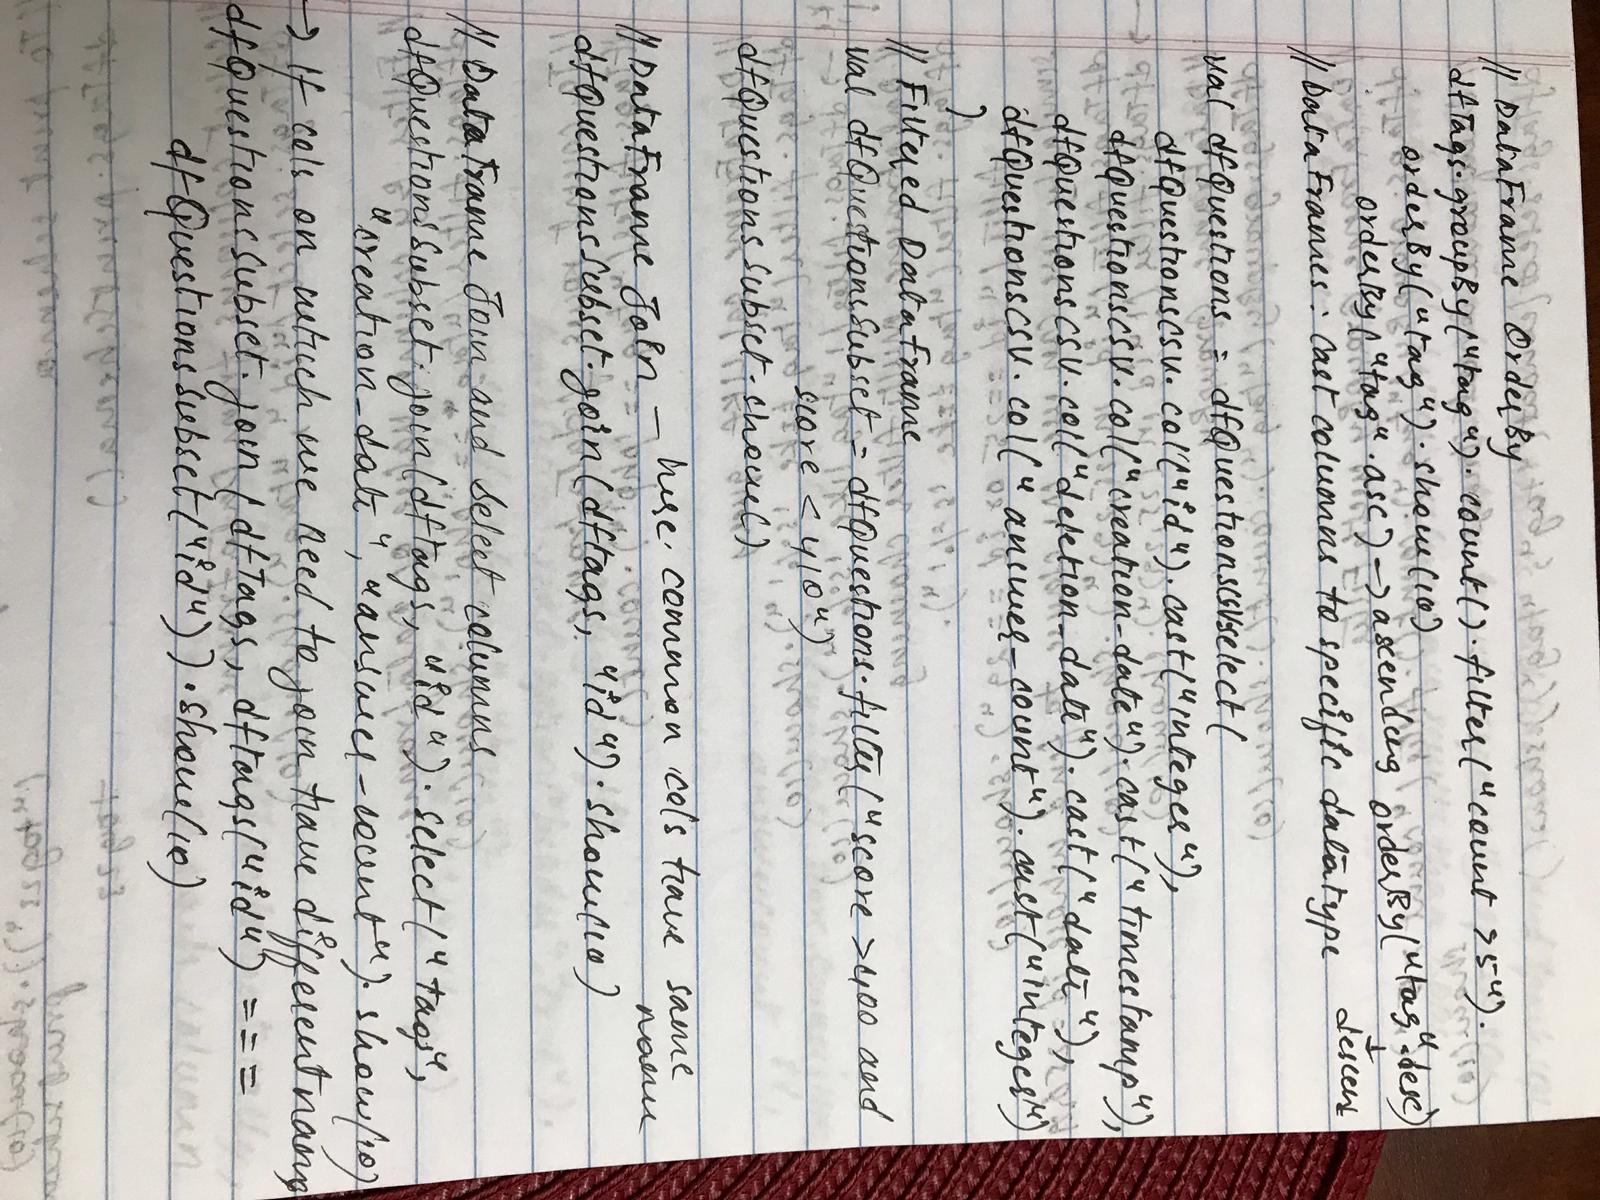 // DataFrame OrderBy
dftags.groupBy("tag").count().filter("count >5").
orderBy("tag").show(10)
orderBy("tag".asc) → ascending orderBy("tag".desc)
// DataFrames: cast columns to specific datatype ↓ descen
val dfQuestions = dfQuestionsCSV.select(
dfQuestionsCSV.col("id").cast("integer"),
dfQuestionsCSV.col("creation_date").cast("timestamp"),
dfQuestionsCSV.col("deletion_date").cast("date"),
dfQuestionsCSV.col("answer_count").cast("integer")
)
// Filtered DataFrame
val dfQuestionsSubset = dfQuestions.filter("score > 400 and
score < 410")
dfQuestionsSubset.show()
// DataFrame Join — here common cols have same
name
dfQuestionsSubset.join(dftags, "id").show(10)
// DataFrame Join and select columns
dfQuestionsSubset.join(dftags, "id").select("tag",
"creation_date", "answer_count").show(10)
→ If cols on which we need to join have different name
dfQuestionsSubset.join(dfTags, dftags("id") ===
dfQuestionsSubset("id")).show(10)